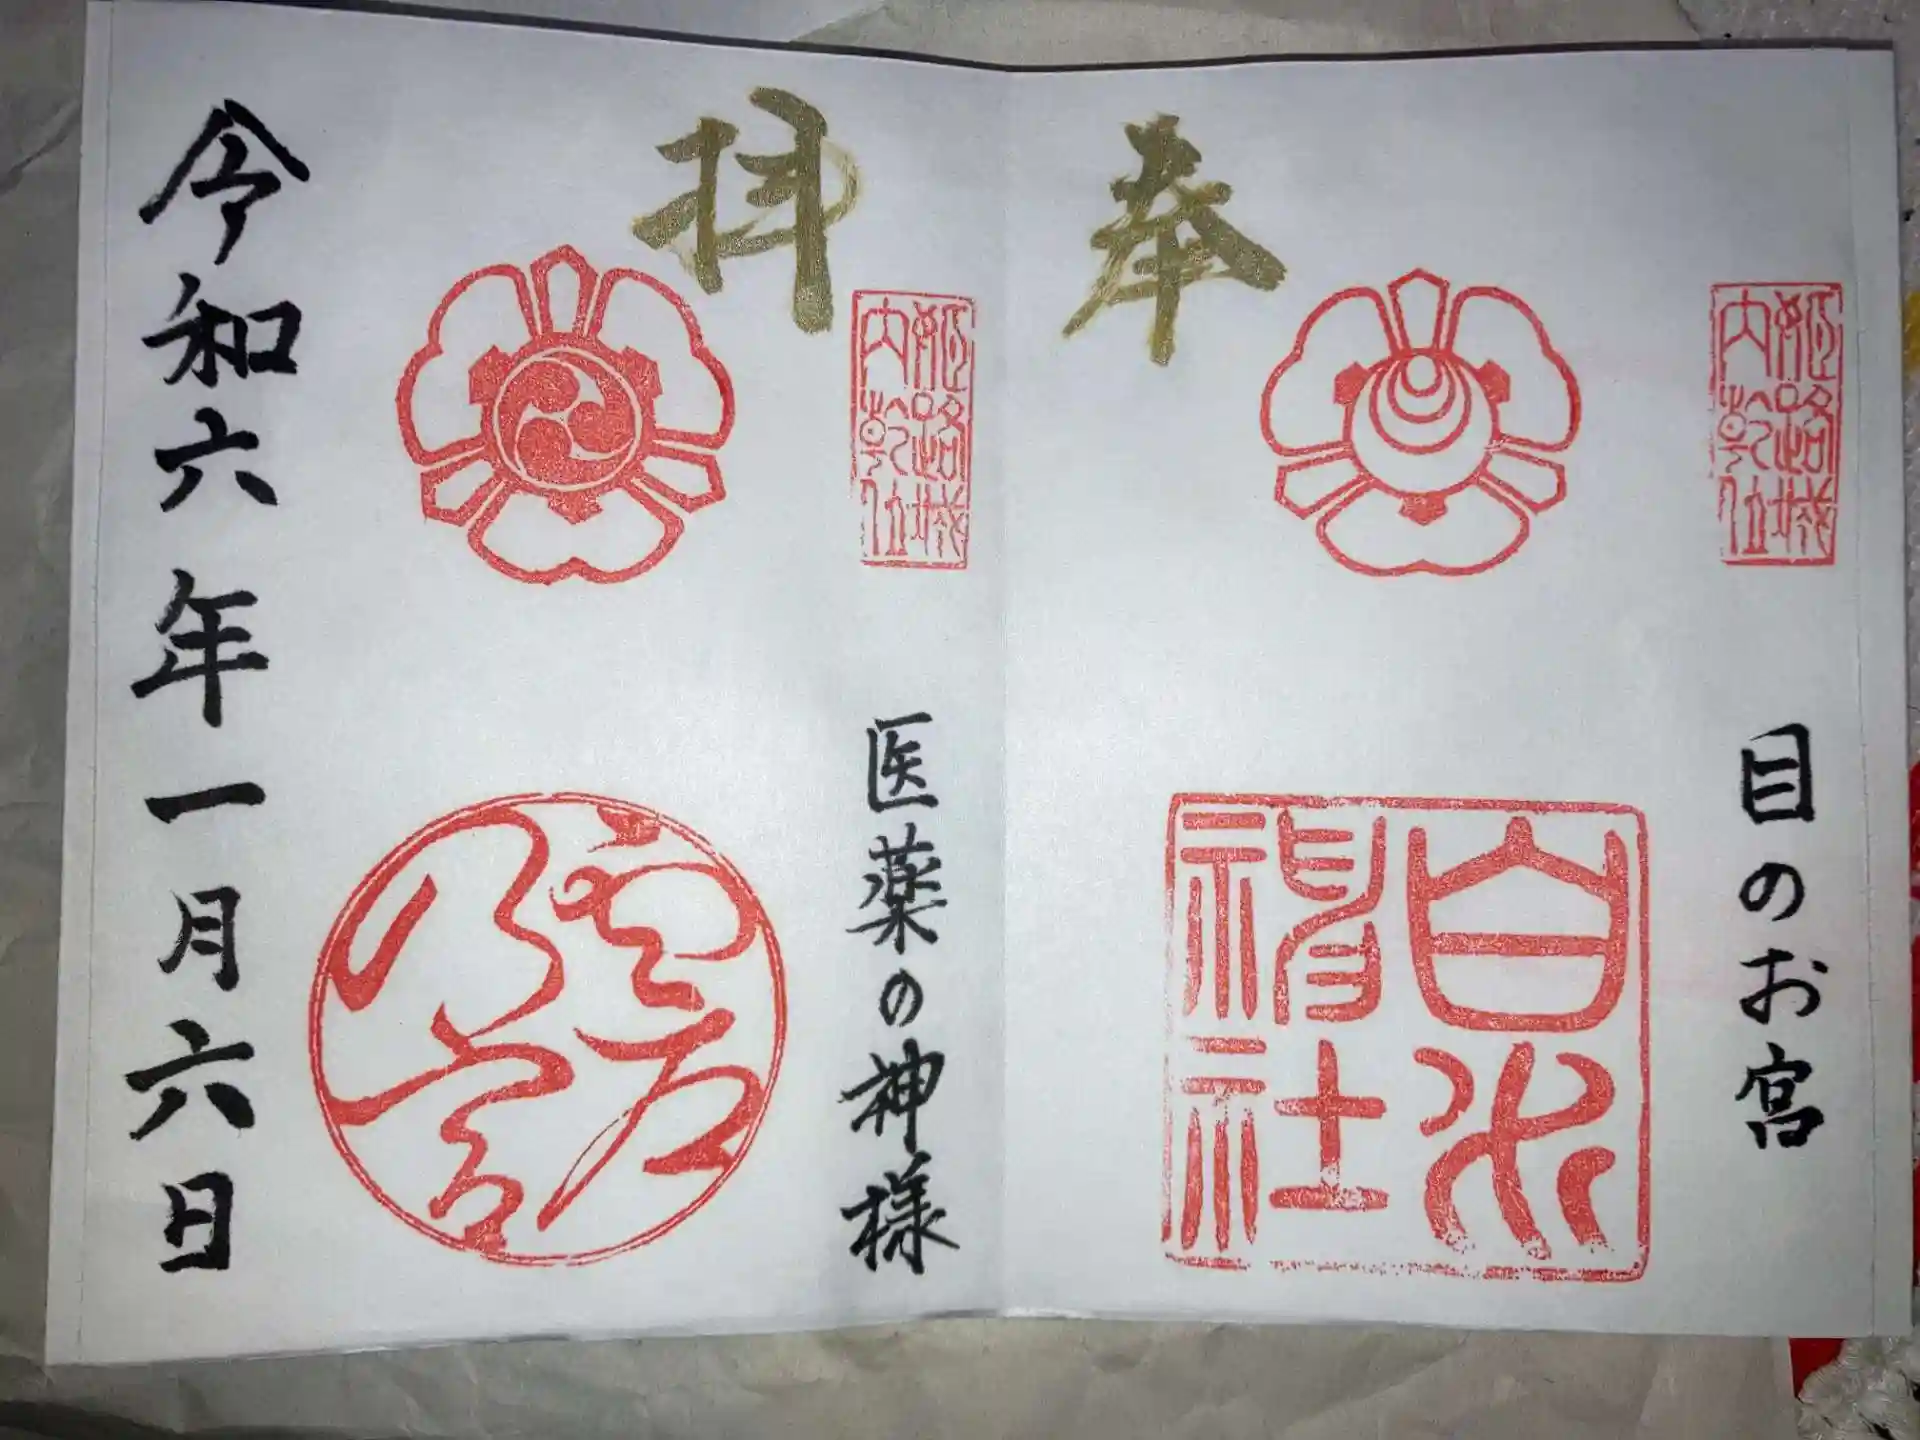 奉
姫路城
内乾位
目のお宮
白水
稲社
拝
姫路城
内乾位
医薬の神様
令和六年一月六日